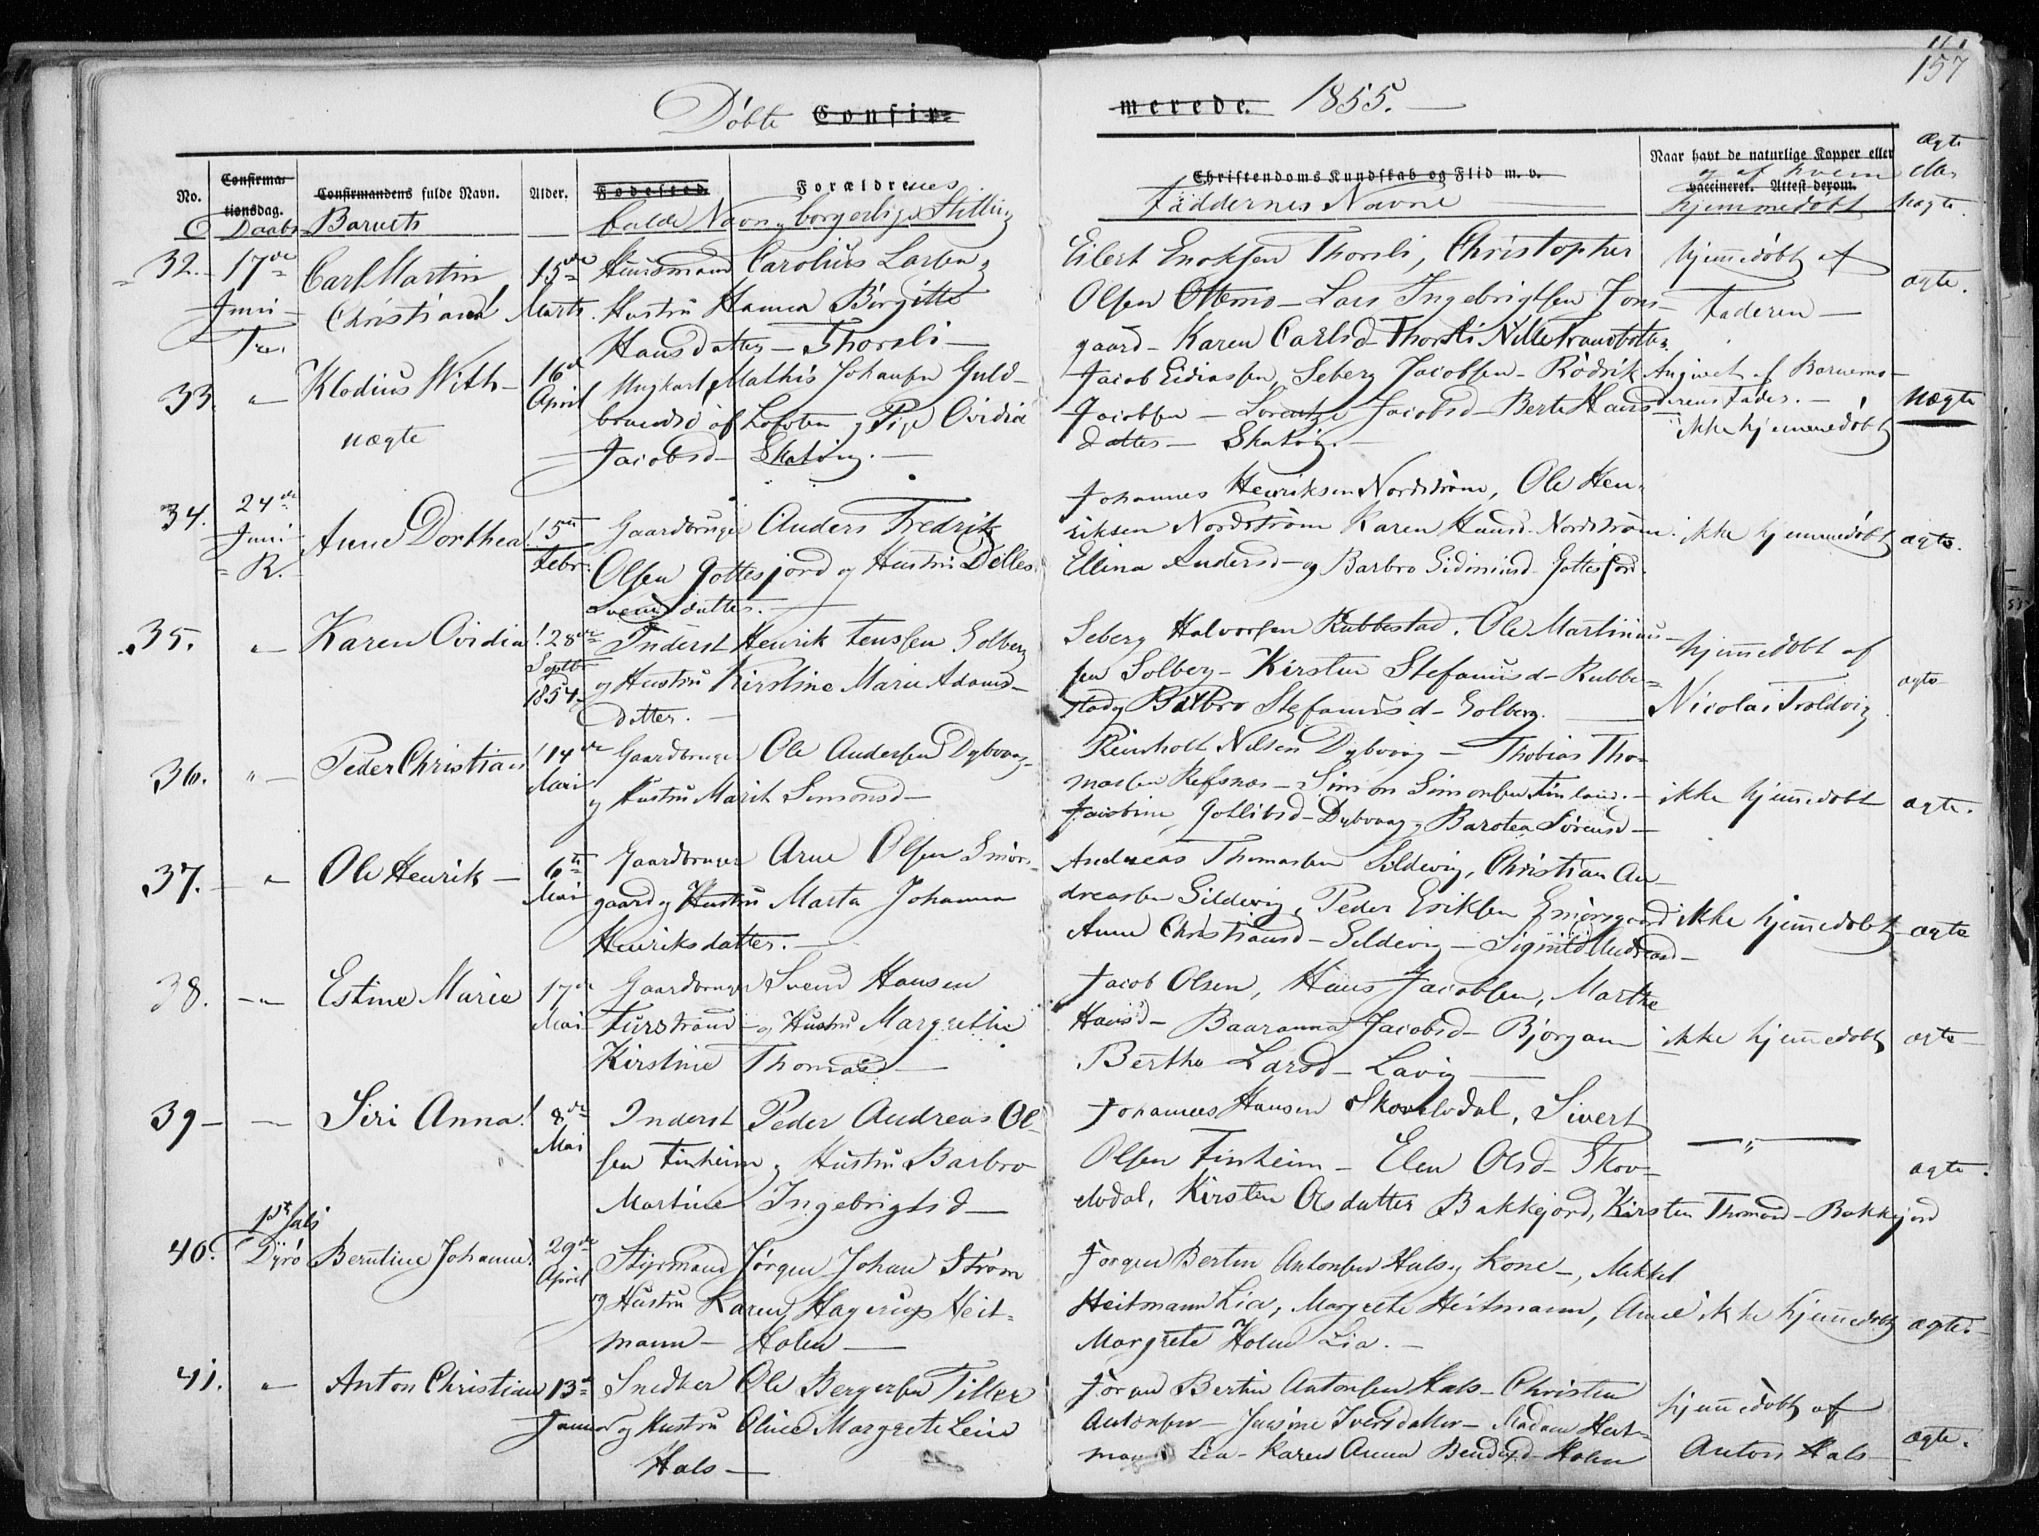 157
Døbte Confir-
merede. 1855.
No. Confirma-tionsdag. Daabs Confirmandens fulde Navn. Barnets Alder. Fødested. Forældrenes fulde Navn og borgerlige Stilling
Christendoms Kundskab og Flid m. v. Faddernes Navne
Naar havt de naturlige Kopper eller vaccineret. Attest derom. og af hvem hjemmedøbt
ægte eller uægte.
32. 17de Juni Carl Martin Christian! 15de Marts. Huusmand Carolius Larsen og
Hustru Hanna Birgitte
Hansdatter – Thorsli –
Eilert Enoksen Thorsli, Christopher
Olsen – Lars Ingebrigtsen Jons-
gaard – Karen Carlsd – Thorsli
hjemmedøbt af
Faderen –
ægte.
33. " Klodius With – uægte 16de April Ungkarl Mathis Johansen Guld-
brandsø af Lofoten og Pige Ovidia
Jacobsd – Skatvig. –
Jacob Eidiassen, Seberg Jacobsen – Rødvik
Jacobsen – Jacobsd – Berte Hans-
datter – Skatvig. –
Angivet af Barnemo-
derens Fader. –
ikke hjemmedøbt
uægte
34. 24de Juni R. Anne Dorthea! 5te Febr. Gaardbruger Anders Fredrik
Olsen Gottesjord og Hustru Dilles
Svendsdatter. –
Johannes Henriksen Nordstrøm, Ole Hen-
riksen Nordstrøm Karen Hansd. Nordstrøm.
Ellina Andersd – og Barbro Gottesjord.
ikke hjemmedøbt
ægte.
35. " Karen Ovidia! 28de Septbr 1854. Inderst Henrik Jenssen Solberg
og Hustru Kirstine Marie Adams-
datter. –
Seberg Halvorsen Rubbestad. Ole Martinus-
sen Solberg – Kirsten Stefanusd – Rubbe-
stad og Barbro Stefanusd – Solberg.
hjemmedøbt af
Nicolai Troldvig
ægte
36. " Peder Christian! 14de Mai Gaardbruger Ole Andersen Dybvaag
og Hustru Marit Simonsd –
Reinholt Nilsen Dybvaag – Thobias Tho-
massen Refsnæs – Simon Simonsen Finland. –
Jacobine Gotlibsd – Dybvaag og Barotea Sørensd –
ikke hjemmedøbt
ægte.
37. " Ole Henrik – 6te Mai Gaardbruger Arne Olsen Smørs-
gaard og Hustru Marta Johanna
Henriksdatter. –
Andreas Thomassen Sildevig, Christian An-
dreasen Sildevig, Peder Eriksen Smørsgaard
Anne Christiansd – Sildevig – Signild Andreasd –
ikke hjemmedøbt
ægte
38. " Estine Marie 17de Mai Gaardbruger Svend Hansen
Furstrand – og Hustru Margrethe
Kirstine Thomasd –
Jacob Olsen, Hans Jacobsen, Marthe
Hansd – Baaranna Jacobsd – Bjorgan
Berthe Larsd – Lavig –
ikke hjemmedøbt
ægte
39 – Siri Anna! 8de Mai Inderst Peder Andreas Ol-
sen Finheim og Hustru Barbro
Martine Ingebrigtsd –
Johannes Hansen Skovelvdal, Sivert
Olsen Finheim – Elen Olsd – Skov-
elvdal, Kirsten Olsdatter Bakkejord, Kirsten Thomasd – Bakkejord
– " –
ægte.
40. 1ste Juli Dyrø Berntine Johanne! 29de April Styrmand Jørgen Johan Strøm
og Hustru Karen Hagerup Heit-
mann – Holm –
Jørgen Bertin Antonsen Hals og Kone –, Mikkel
Heitmann Lia, Margrete Heitmann, Anne
Margrete Holm Lia. –
ikke hjemmedøbt
ægte –
41. " Anton Christian 13de Januar Snedker Ole Bergersen Tiller
og Hustru Oline Margrete Leine
Hals –
Jørgen Bertin Antonsen Hals – Christen
Antonsen – Jensine Iversdatter – Madam Heit-
mann Lia – Karen Anna – Holm
hjemmedøbt af
Anton Hals –
ægte.